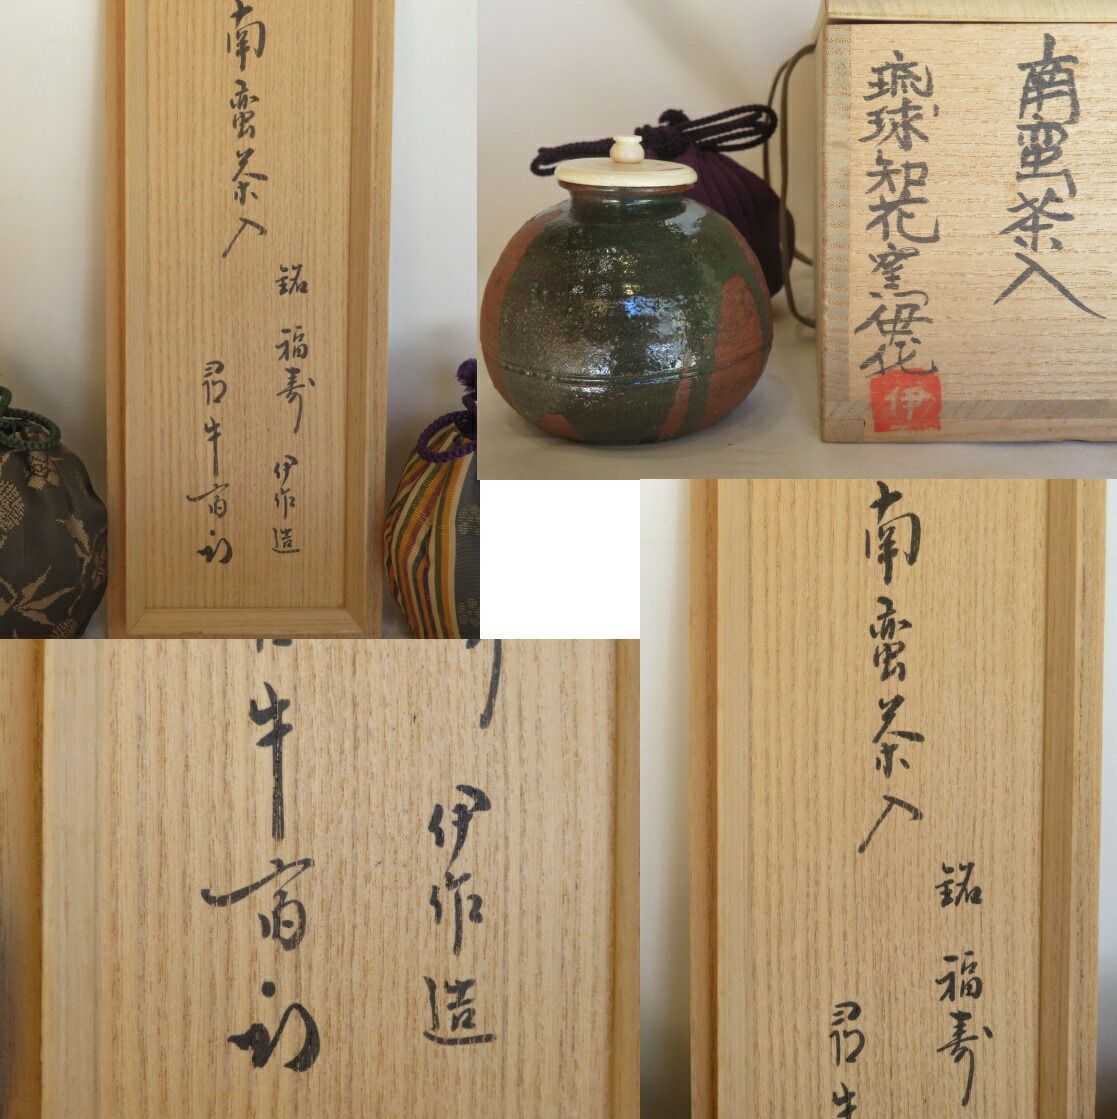 南蛮茶入
銘 福寿 伊作造
尋牛斎
南蛮茶入
琉球知花窯 伊作
伊
伊作造
牛斎
南蛮茶入
銘 福寿
尋牛